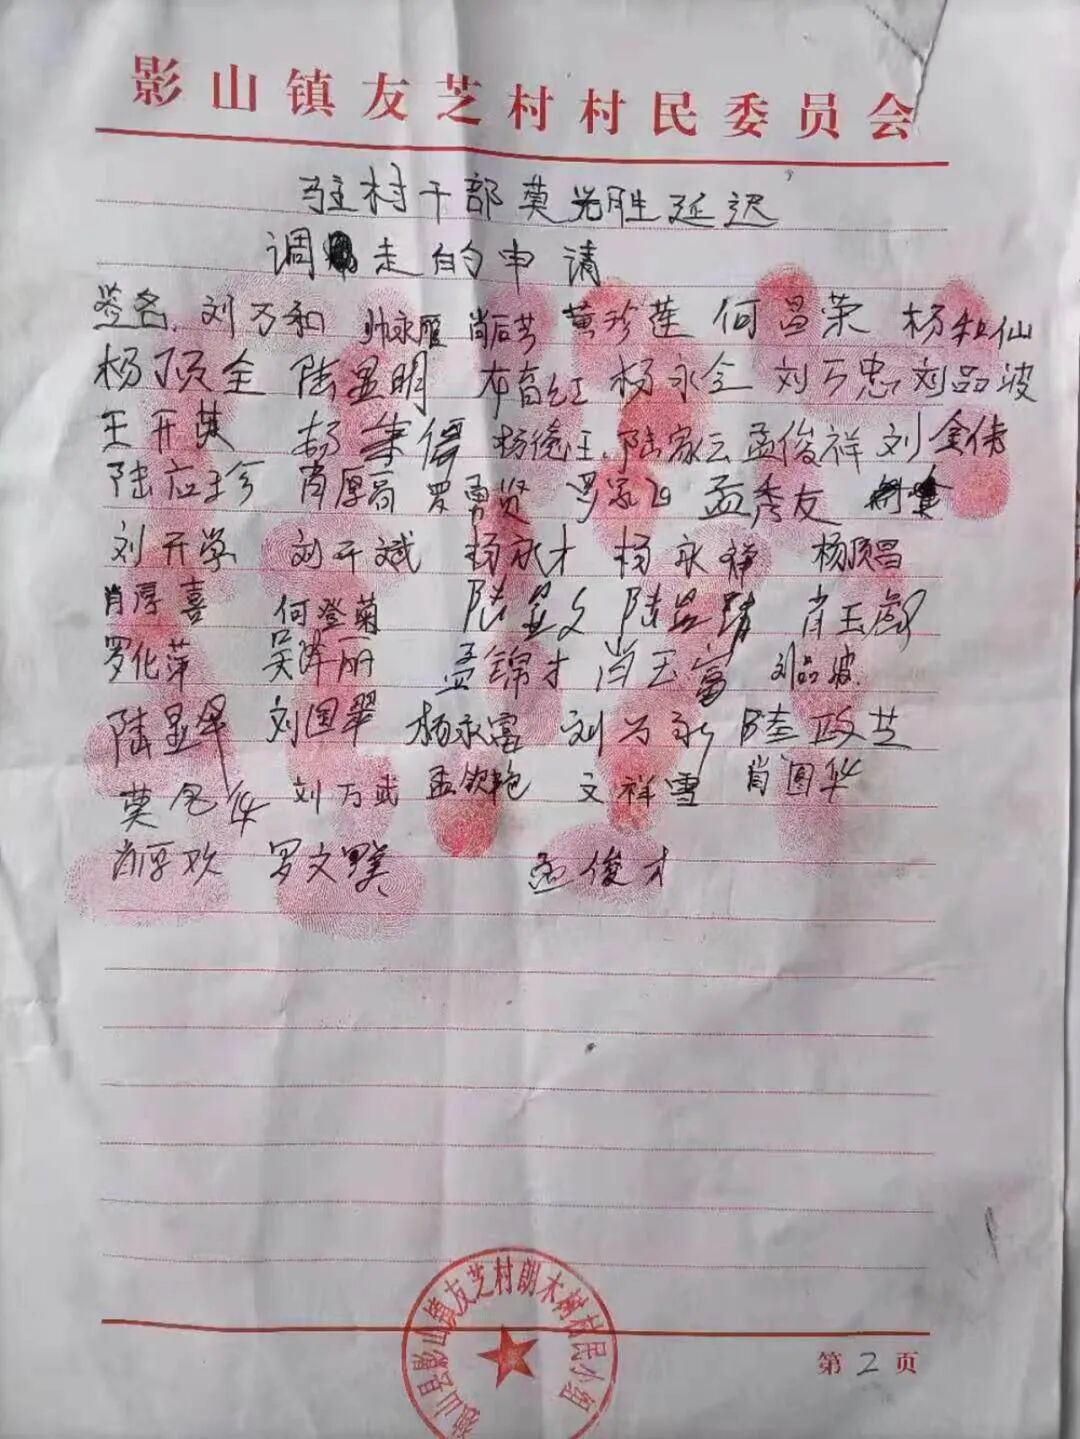 影山镇友芝村村民委员会
驻村干部莫光胜延迟
调走的申请
签名 刘万和 帅永雁 肖后芬 黄珍莲 何昌荣 杨 仙
杨顶全 陆显明 韦育红 杨永全 刘万忠 刘品波
王开英 杨 杨德江 陆家云 孟俊祥 刘金伟
陆应珍 肖厚高 罗勇贤 罗 孟秀友
刘开学 刘开斌 杨永才 杨永 杨顶昌
肖厚喜 何登菊 陆显文 陆 肖玉
罗化萍 吴泽丽 孟锦才 肖玉富 刘品波
陆显军 刘国翠 杨永富 刘万永 陆政芝
莫 华 刘万武 孟钦艳 文祥雪 肖国华
肖厚欢 罗文 孟俊才
独山县影山镇友芝村朗木树村民小组
第2页